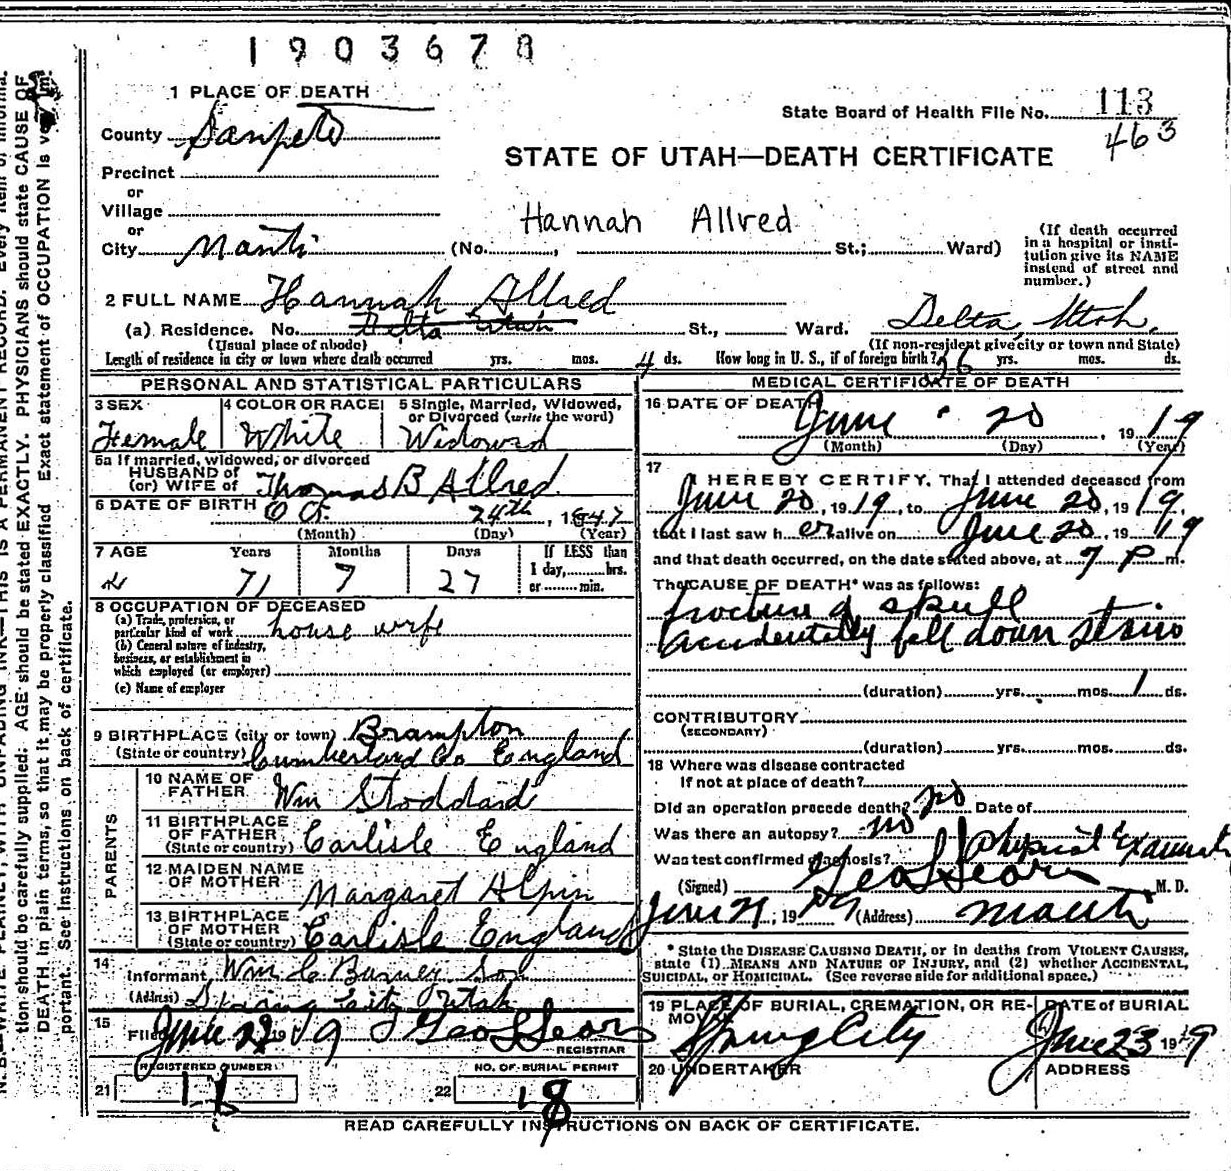 1903678
1 PLACE OF DEATH
State Board of Health File No. 113
463
County Sanpete
STATE OF UTAH—DEATH CERTIFICATE
Precinct
or
Village
Hannah Allred
or
City Manti (No. , St.; Ward)
(If death occurred in a hospital or institution give its NAME instead of street and number.)
2 FULL NAME Hannah Allred
(a) Residence. No. Delta Utah St., Ward. Delta, Utah.
(Usual place of abode) (If non-resident give city or town and State)
Length of residence in city or town where death occurred yrs. mos. 4 ds. How long in U. S., if of foreign birth? 56 yrs. mos. ds.
PERSONAL AND STATISTICAL PARTICULARS
3 SEX Female
4 COLOR OR RACE White
5 Single, Married, Widowed, or Divorced (write the word) Widowed
5a If married, widowed, or divorced
HUSBAND of
(or) WIFE of Thomas B Allred
6 DATE OF BIRTH Oct. 24th, 1847
(Month) (Day) (Year)
7 AGE Years Months Days If LESS than
71 7 27 1 day, hrs.
or min.
8 OCCUPATION OF DECEASED
(a) Trade, profession, or
particular kind of work house wife
(b) General nature of industry,
business, or establishment in
which employed (or employer)
(c) Name of employer
9 BIRTHPLACE (city or town) Brampton
(State or country) Cumberland Co England
PARENTS
10 NAME OF
FATHER Wm Stoddard
11 BIRTHPLACE
OF FATHER
(State or country) Carlisle England
12 MAIDEN NAME
OF MOTHER Margaret Alpin
13 BIRTHPLACE
OF MOTHER
(State or country) Carlisle England
14
Informant Wm C Burney Son
(Address) Spring City Utah
15
Filed June 22 1919 Geo L Sears
REGISTRAR
REGISTERED NUMBER
21 18
NO. OF BURIAL PERMIT
22 18
MEDICAL CERTIFICATE OF DEATH
16 DATE OF DEATH
June 20, 1919
(Month) (Day) (Year)
17
I HEREBY CERTIFY, That I attended deceased from
June 20, 1919, to June 20, 1919,
that I last saw her alive on June 20, 1919
and that death occurred, on the date stated above, at 7 P m.
The CAUSE OF DEATH* was as follows:
fracture of skull
accidentally fell down stairs
(duration) yrs. mos. 1 ds.
CONTRIBUTORY
(SECONDARY)
(duration) yrs. mos. ds.
18 Where was disease contracted
If not at place of death?
Did an operation precede death? no Date of
Was there an autopsy? no
Was test confirmed diagnosis? Physical
(Signed) Geo L Sears M. D.
June 21, 1919 (Address) Manti
* State the DISEASE CAUSING DEATH, or in deaths from VIOLENT CAUSES,
state (1) MEANS AND NATURE OF INJURY, and (2) whether ACCIDENTAL,
SUICIDAL, or HOMICIDAL. (See reverse side for additional space.)
19 PLACE OF BURIAL, CREMATION, OR REMOVAL
Spring City
DATE of BURIAL
June 23 1919
20 UNDERTAKER ADDRESS
READ CAREFULLY INSTRUCTIONS ON BACK OF CERTIFICATE.
tion should be carefully supplied: AGE should be stated EXACTLY. PHYSICIANS should state CAUSE OF
DEATH in plain terms, so that it may be properly classified Exact statement of OCCUPATION is
portant. See instructions on back of certificate.